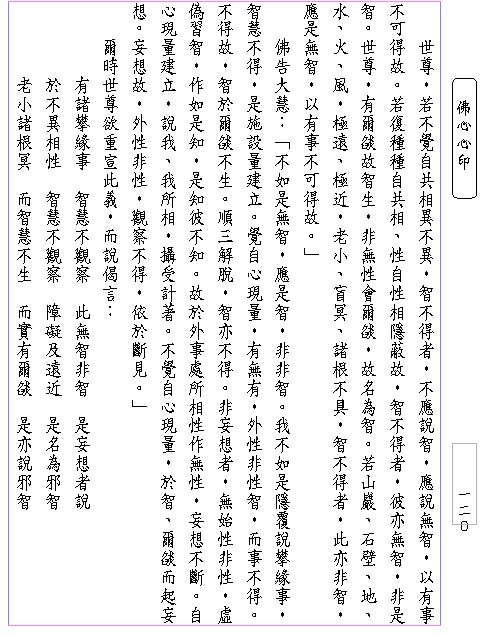 佛心心印
世尊，若不覺自共相異不異，智不得者，不應說智，應說無智，以有事
不可得故。若復種種自共相、性自性相隱蔽故，智不得者，彼亦無智，非是
智。世尊，有爾燄故智生，非無性會爾燄，故名為智。若山巖、石壁、地、
水、火、風，極遠、極近，老小、盲冥、諸根不具，智不得者，此亦非智，
應是無智，以有事不可得故。」
佛告大慧：「不如是無智，應是智，非非智。我不如是隱覆說攀緣事，
智慧不得，是施設量建立。覺自心現量，有無有，外性非性智，而事不得。
不得故，智於爾燄不生。順三解脫，智亦不得。非妄想者，無始性非性，虛
偽習智，作如是知，是知彼不知。故於外事處所相性作無性，妄想不斷。自
心現量建立，說我、我所相，攝受計著。不覺自心現量，於智、爾燄而起妄
想。妄想故，外性非性，觀察不得，依於斷見。」
爾時世尊欲重宣此義，而說偈言：
有諸攀緣事　智慧不觀察　此無智非智　是妄想者說
於不異相性　智慧不觀察　障礙及遠近　是名為邪智
老小諸根冥　而智慧不生　而實有爾燄　是亦說邪智
一二０